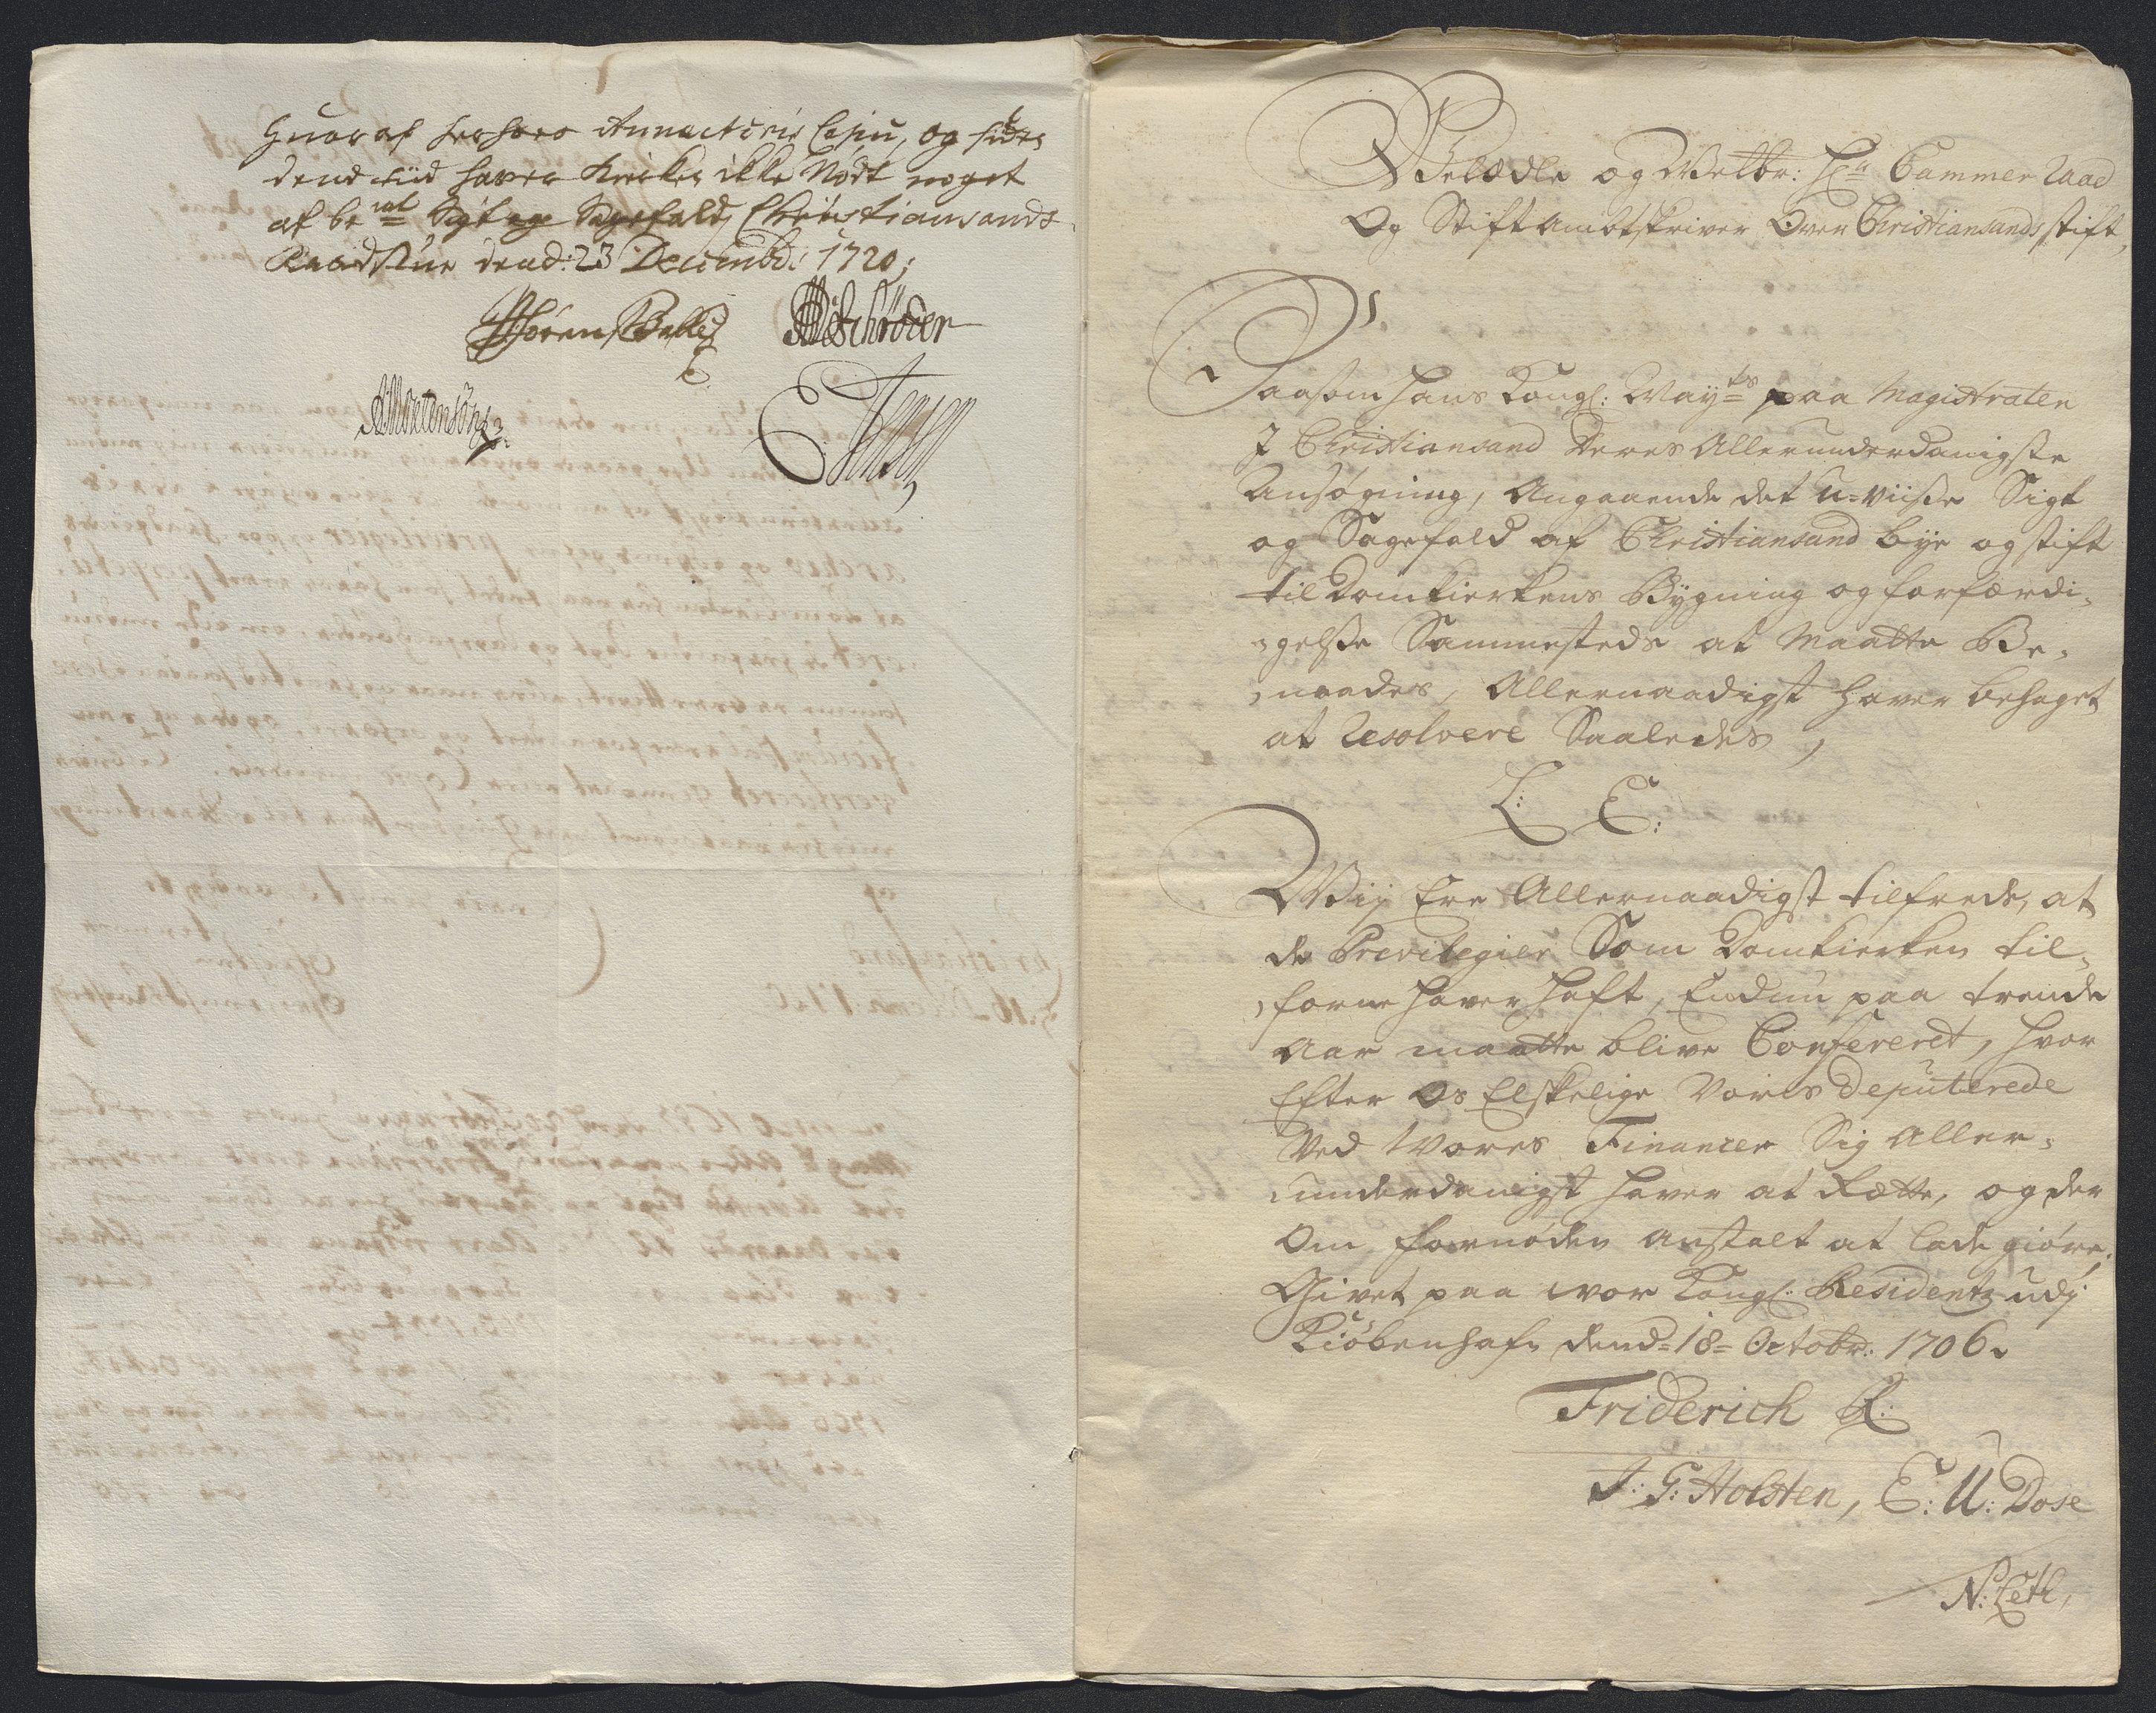 Huoraf herhoes Annecteris Copiu, og sider
dend tiid hafver Kircken icke Nödt noget
af be.mt Sigt og Sagefald, Christiansands
Raadstue dend: 23 Decembr: 1720;
Sören Balle
Schröder
Mortensön
E Jensen
Velædle og Welbr: Hr. Cammer Raad
Og Stiftambtskriver Over Christiansands stift,
Saasom hans Kongl: May.ts paa Magistraten
I Christiansand deres Allerunderdanigste
Ansøgning, Angaaende det u-viisse Sigt
og Sagefald af Christiansand bye og stift
til Domkierkens Bÿgning og forfærdi,
,gelsse Sammesteds at Maatte Be,
,naades, Allernaadigst haver behaget
at Resolvere Saaledes,
L: E:
Wij Ere Allernaadigst tilfreds, at
de Previlegier Som Domkierken til,
,forne haver haft, Endnu paa trende
Aar maatte blive Confereret, hvor
Efter Os Elskelige Vores Deputerede
Ved Wores Financer Sig Aller,
,underdanigst haver at Rætte, og der
Om fornøden anstalt at lade giøre.
Givet paa wor Kongl: Residentz udj
Kiöbenhafn dend 18 Octobr: 1706.
Friderich R:
J: G: Holsten, C: U: Dose
N: Leth,